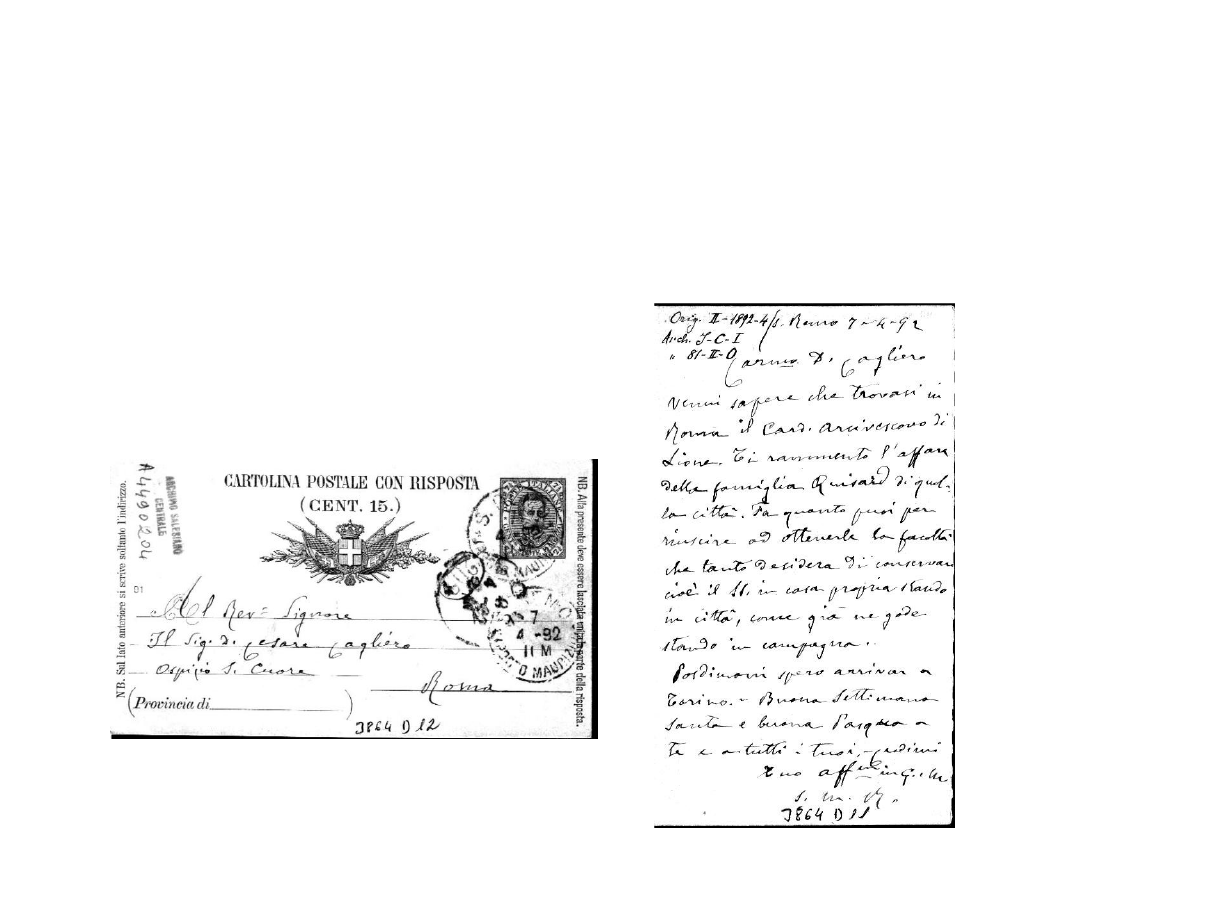 CARTOLINA POSTALE CON RISPOSTA
(CENT. 15.)
NB. Sul lato anteriore si scrive soltanto l'indirizzo.
NB. Alla presente deve essere lasciata unita la parte della risposta.
A4490204
ARCHIVIO SALESIANO
CENTRALE
POSTE ITALIANE
01
7
4 -92
PORTO MAURIZIO
Al Rev= Signore
Il Sig. D. Cesare Cagliero
Ospizio S. Cuore
Roma
(Provincia di )
3864 D 12
Orig. II-1892-4/S. Remo 7-4-92
Arch. J-C-I
" 81-II-O
Carmo D. Cagliero
Venni sapere che trovasi in
Roma il Card. Arcivescovo di
Lione. Ti rammento l'affare
della famiglia Quisard di quel-
la città. Fa quanto puoi per
riuscire ad ottenerle la facoltà
che tanto desidera di conservare
cioè il SS. in casa propria stando
in città, come già ne gode
stando in campagna.
Posdimani spero arrivar a
Torino. - Buona Settimana
Santa e buona Pasqua a
te e a tutti i tuoi, - credimi
tuo affmo in G. e M.
S. M. R.
3864 D 11